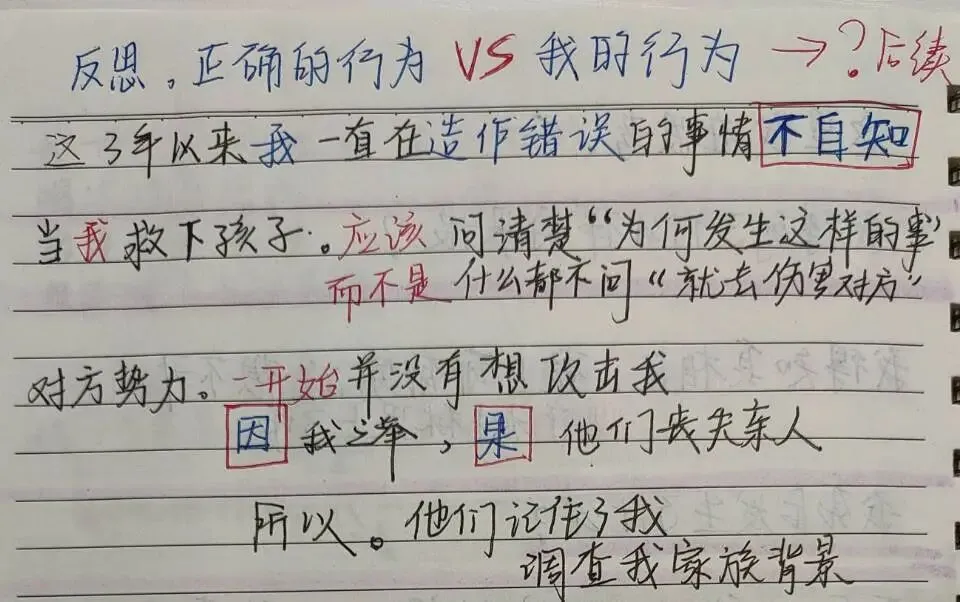 反思。正确的行为 VS 我的行为 →？后续
这3年以来我一直在造作错误的事情不自知
当我救下孩子。应该问清楚“为何发生这样的事”
而不是什么都不问“就去伤害对方”
对方势力。一开始并没有想攻击我
因我之举，果他们丧失亲人
所以。他们记住了我
调查我家族背景